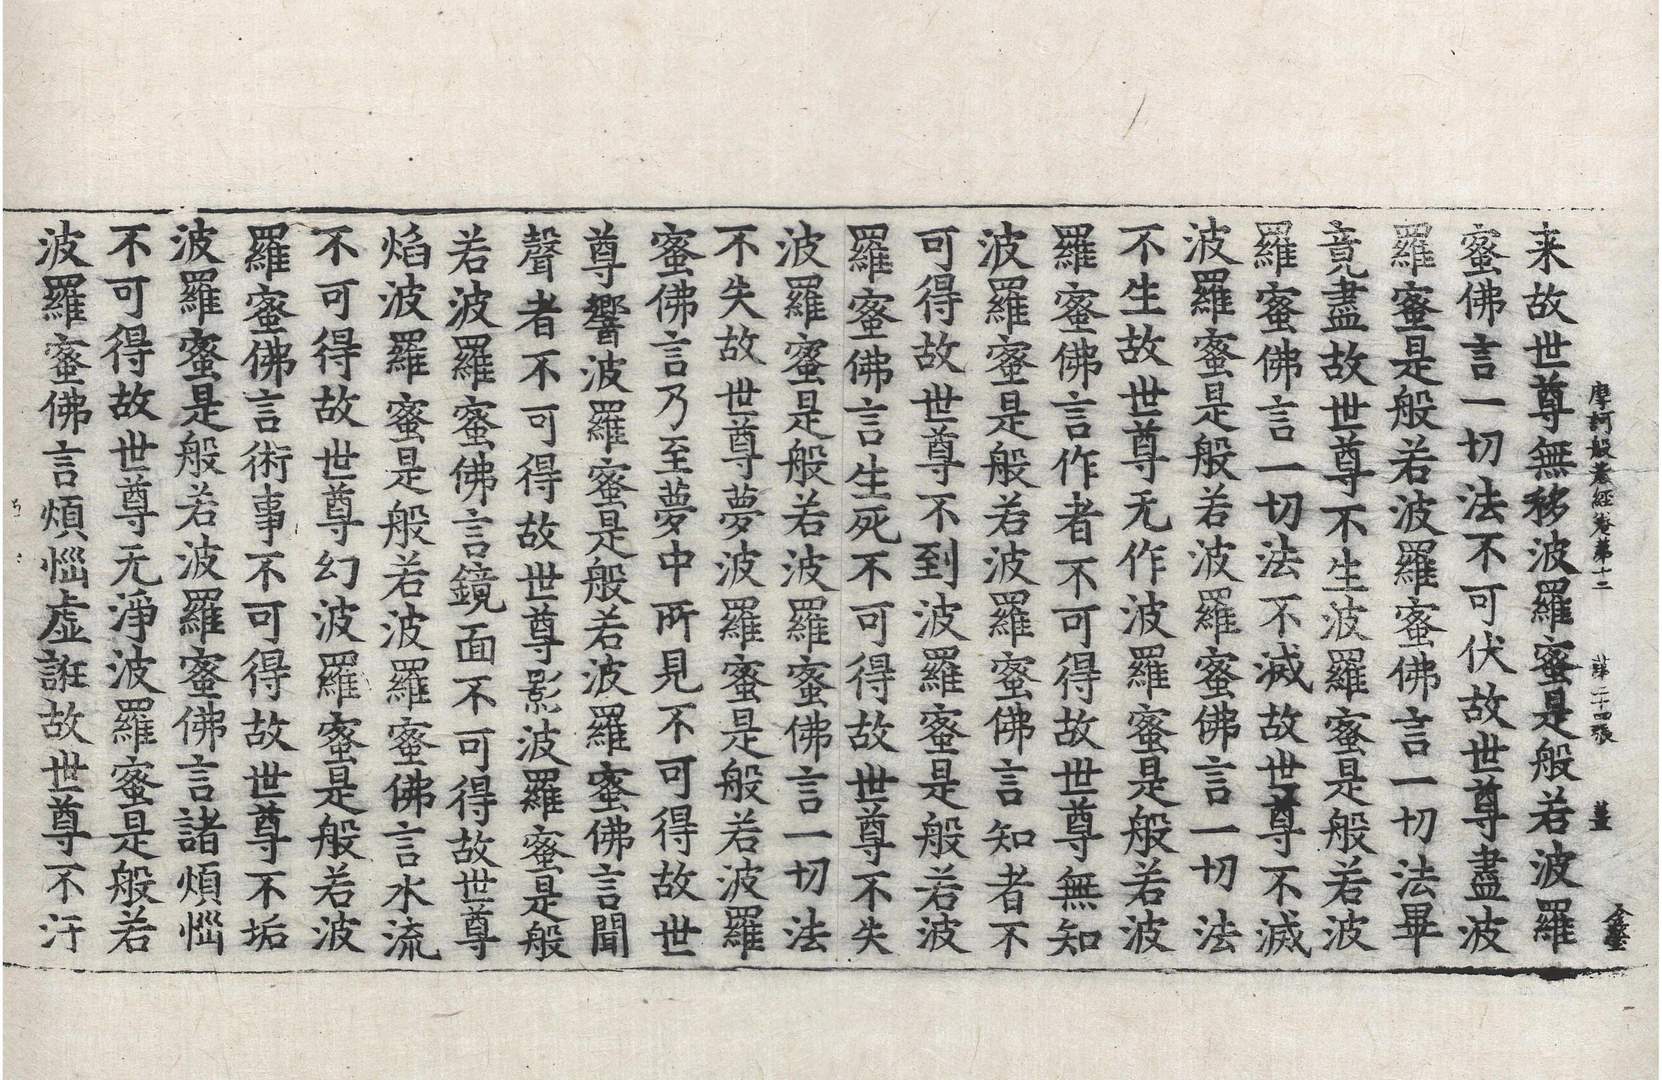 摩訶般若經卷第十二 第二十四張 薑
来故世尊無移波羅蜜是般若波羅
蜜佛言一切法不可伏故世尊盡波
羅蜜是般若波羅蜜佛言一切法畢
竟盡故世尊不生波羅蜜是般若波
羅蜜佛言一切法不滅故世尊不滅
波羅蜜是般若波羅蜜佛言一切法
不生故世尊无作波羅蜜是般若波
羅蜜佛言作者不可得故世尊無知
波羅蜜是般若波羅蜜佛言知者不
可得故世尊不到波羅蜜是般若波
羅蜜佛言生死不可得故世尊不失
波羅蜜是般若波羅蜜佛言一切法
不失故世尊夢波羅蜜是般若波羅
蜜佛言乃至夢中所見不可得故世
尊響波羅蜜是般若波羅蜜佛言聞
聲者不可得故世尊影波羅蜜是般
若波羅蜜佛言鏡面不可得故世尊
焰波羅蜜是般若波羅蜜佛言水流
不可得故世尊幻波羅蜜是般若波
羅蜜佛言術事不可得故世尊不垢
波羅蜜是般若波羅蜜佛言諸煩惱
不可得故世尊无淨波羅蜜是般若
波羅蜜佛言煩惱虛誑故世尊不汙